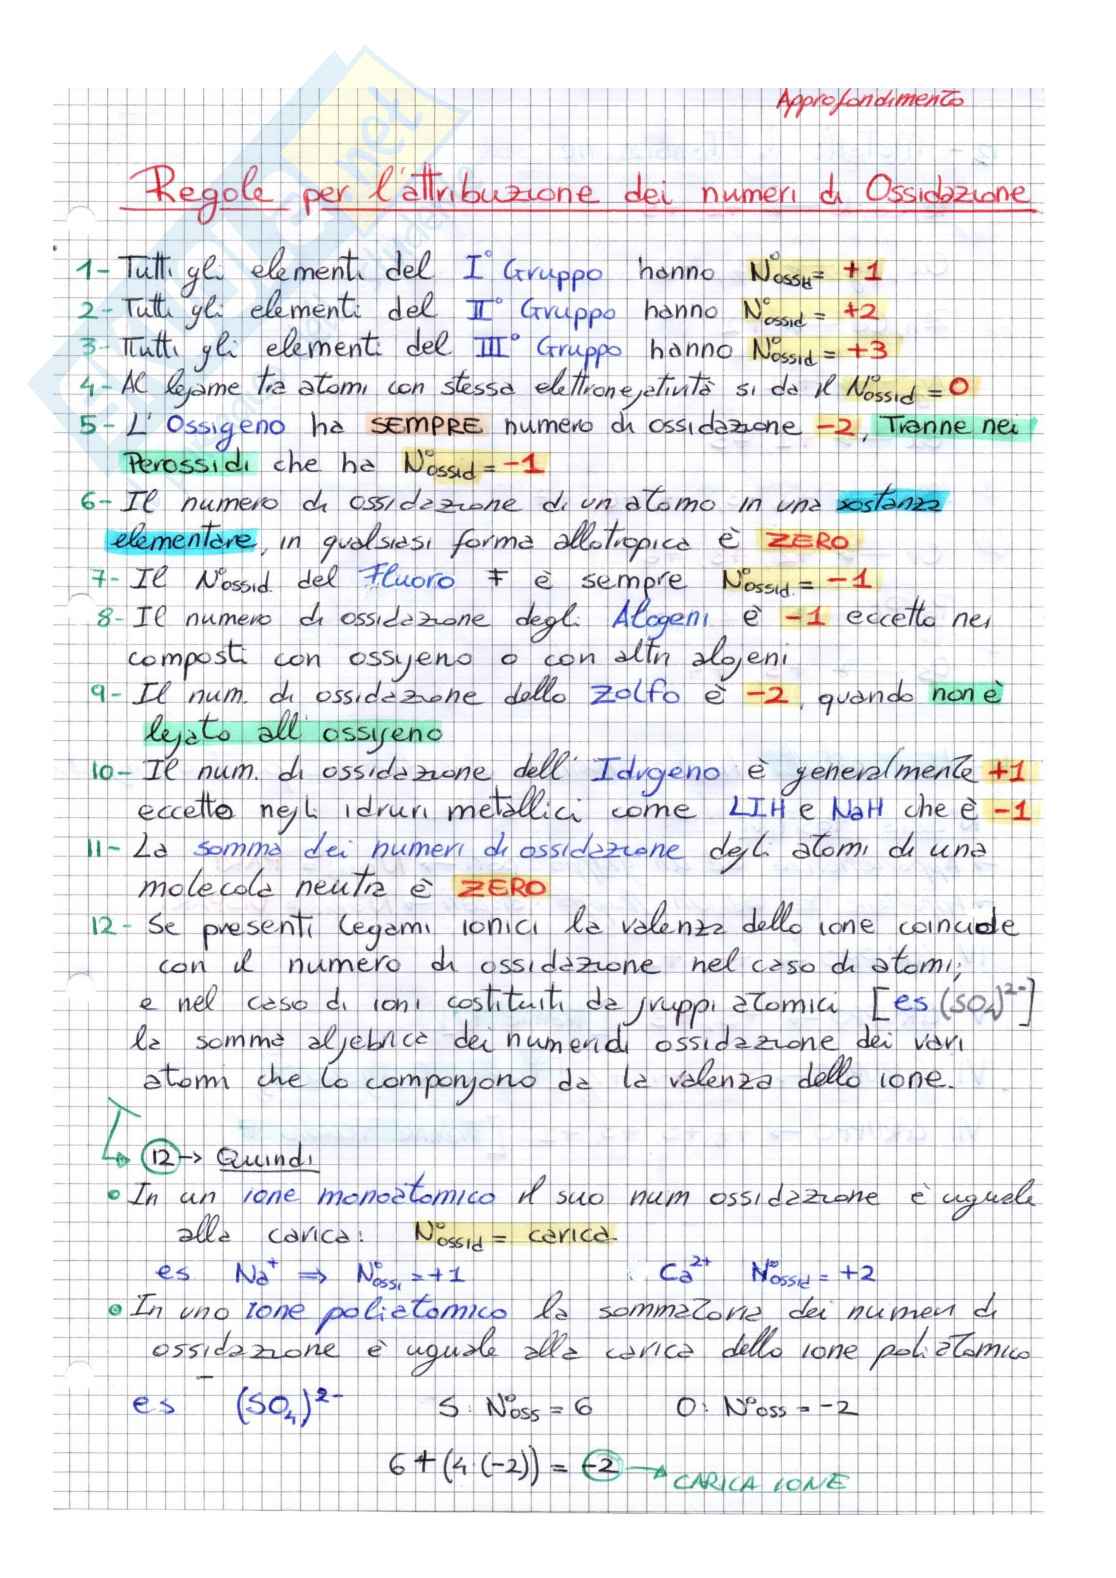 Approfondimento
Regole per l'attribuzione dei numeri di Ossidazione
1- Tutti gli elementi del I° Gruppo hanno N°ossid = +1
2- Tutti gli elementi del II° Gruppo hanno N°ossid = +2
3- Tutti gli elementi del III° Gruppo hanno N°ossid = +3
4- Al legame tra atomi con stessa elettronegatività si da il N°ossid = 0
5- L'Ossigeno ha SEMPRE numero di ossidazione -2, Tranne nei
Perossidi che ha N°ossid = -1
6- Il numero di ossidazione di un atomo in una sostanza
elementare, in qualsiasi forma allotropica è ZERO
7- Il N°ossid. del Fluoro F è sempre N°ossid. = -1
8- Il numero di ossidazione degli Alogeni è -1 eccetto nei
composti con ossigeno o con altri alogeni
9- Il num. di ossidazione dello Zolfo è -2, quando non è
legato all'ossigeno
10- Il num. di ossidazione dell'Idrogeno è generalmente +1
eccetto negli idruri metallici come LIH e NaH che è -1
11- La somma dei numeri di ossidazione degli atomi di una
molecola neutra è ZERO
12- Se presenti legami ionici la valenza dello ione coincide
con il numero di ossidazione nel caso di atomi;
e nel caso di ioni costituiti da gruppi atomici [es (SO₄)²⁻]
la somma algebrica dei numeri di ossidazione dei vari
atomi che lo compongono da la valenza dello ione.
12 → Quindi
• In un ione monoatomico il suo num ossidazione è uguale
alla carica: N°ossid = carica.
es Na⁺ ⇒ N°ossi = +1 Ca²⁺ N°ossid = +2
• In uno ione poliatomico la sommatoria dei numeri di
ossidazione è uguale alla carica dello ione poliatomico
es (SO₄)²⁻ S: N°oss = 6 O: N°oss = -2
6 + (4·(-2)) = -2 → CARICA IONE